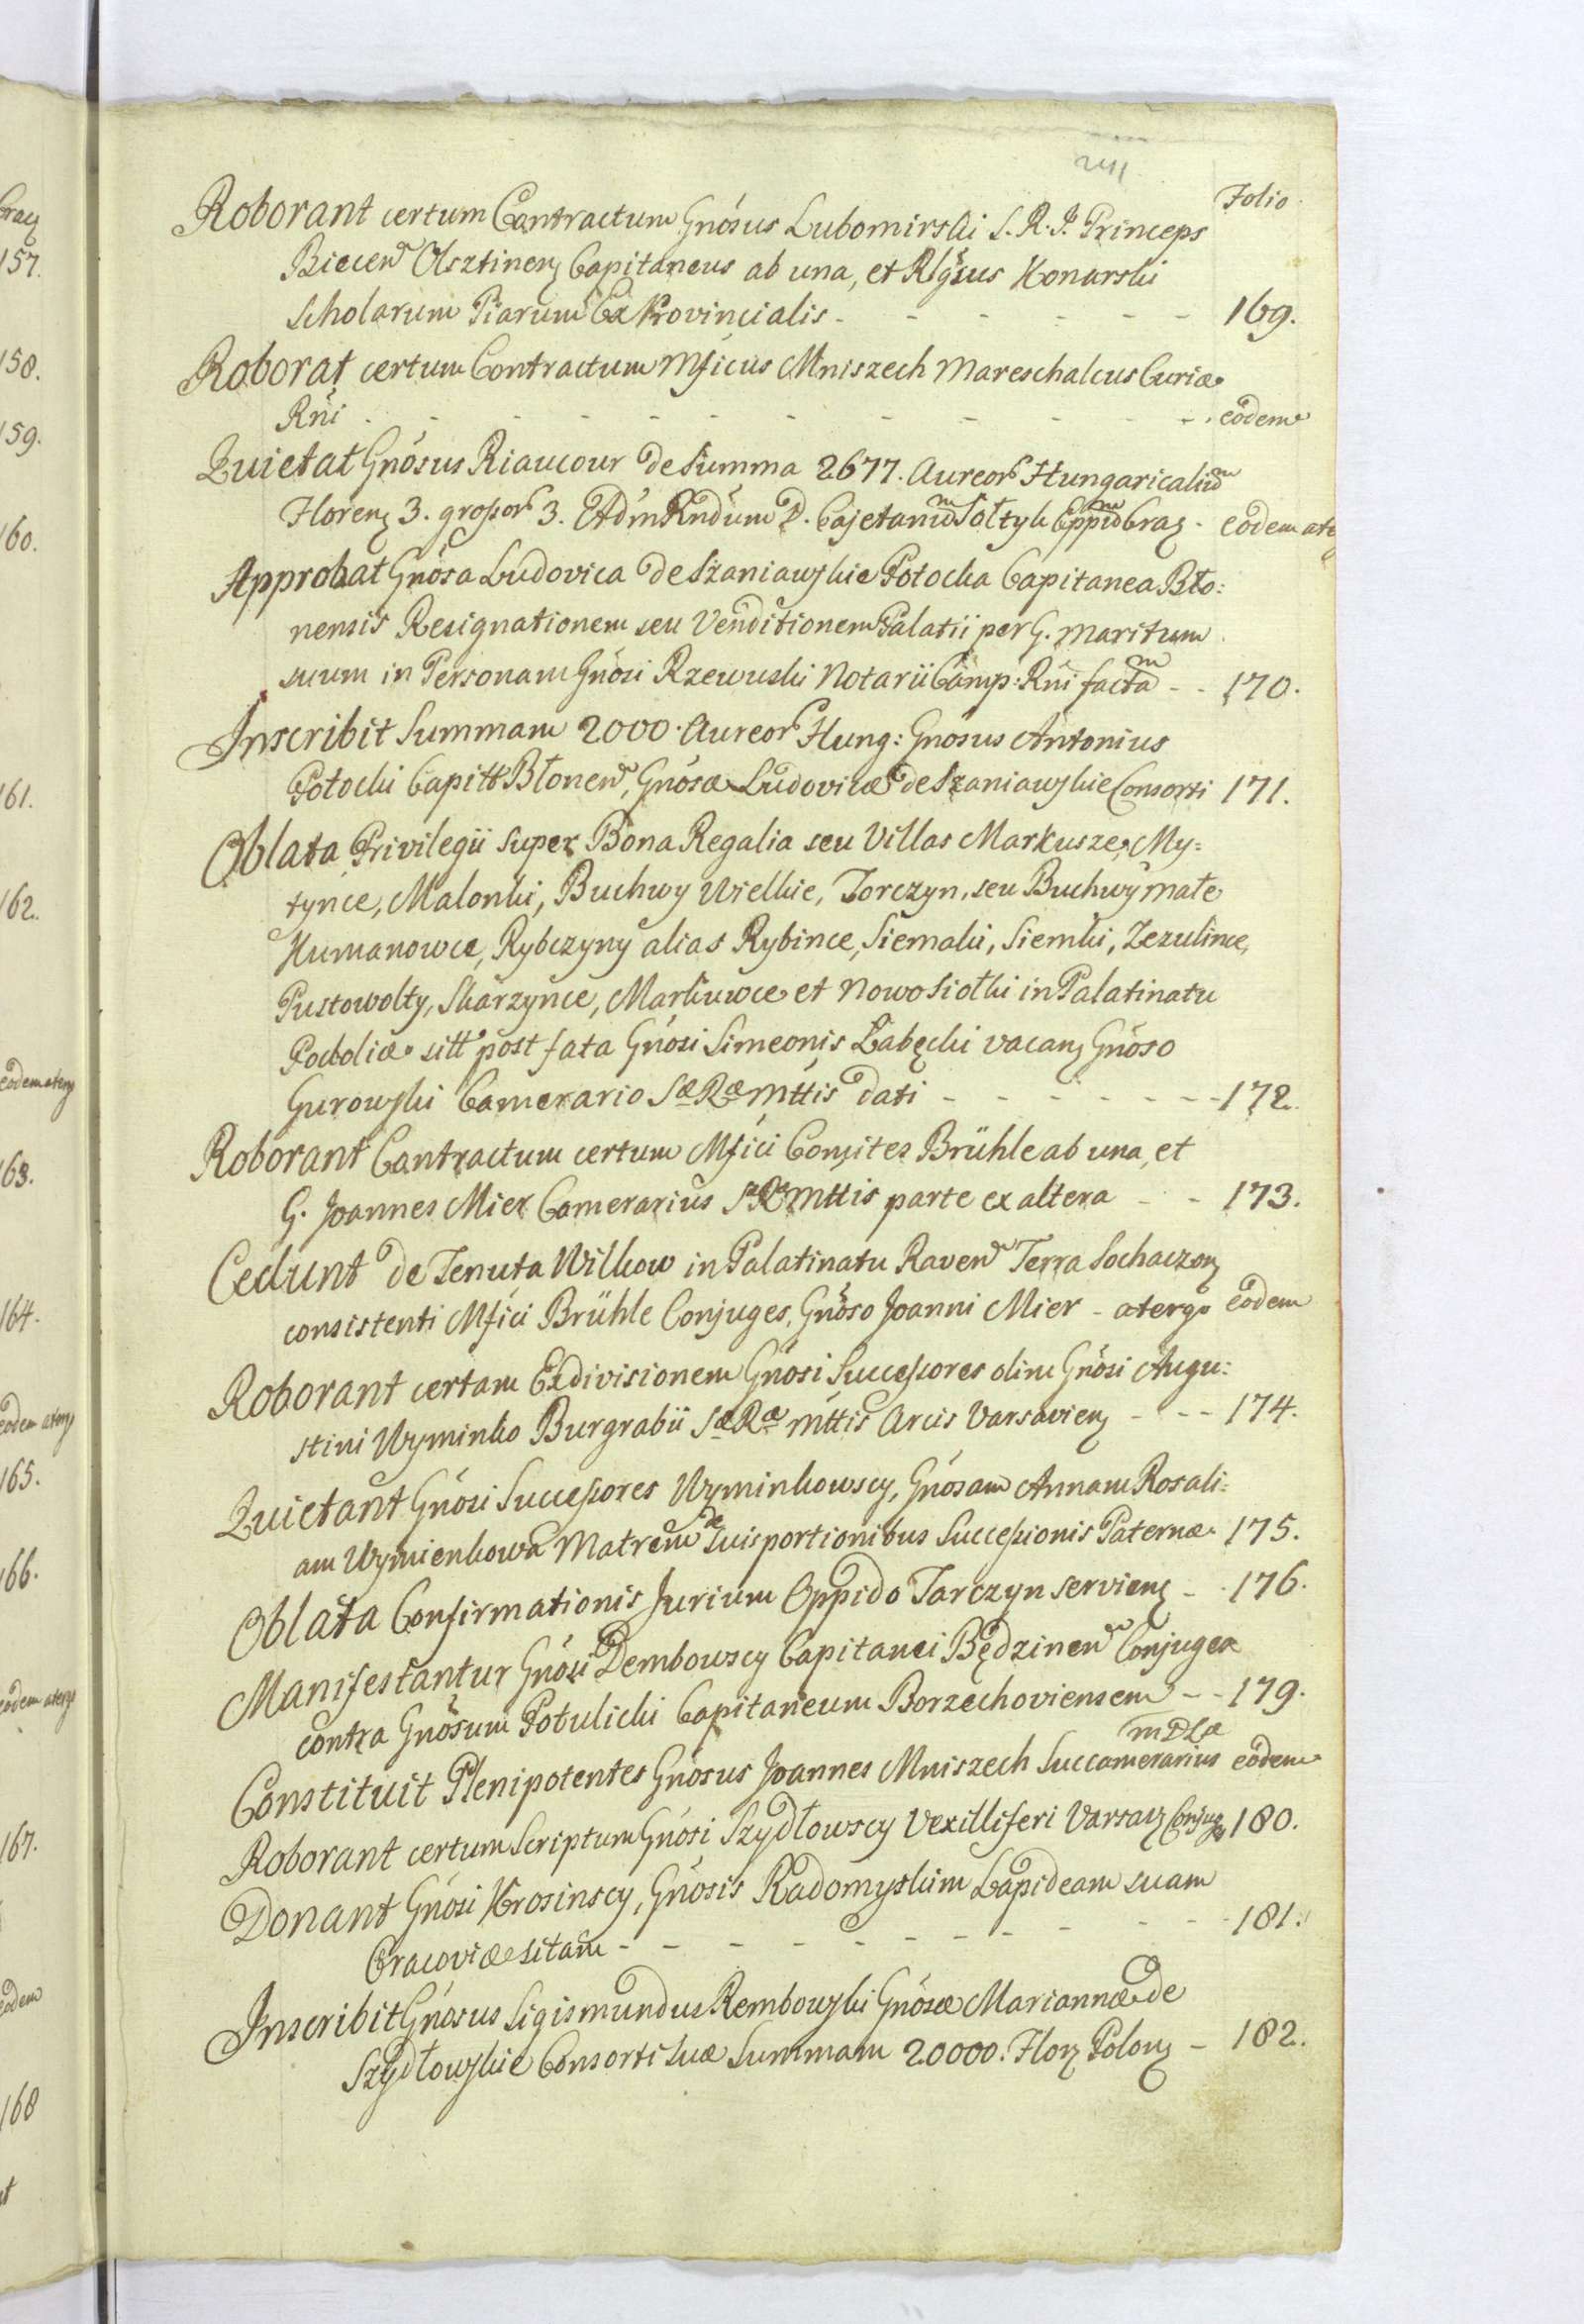 241
Folio
Roborant certum Contractum Gnósus Lubomirski S. R. I. Princeps
Biecen Olsztinen Capitaneus ab una, et Rlgsus Konarski
Scholarum Piarum Ex Provincialis - - - - - - 169.
Roborat certum Contractum Mficus Mniszech Mareschalcus Curiæ
Rni - - - - - - - - - - - eodem
Quietat Gnósus Riaucour de Summa 2677. Aureor Hungaricaliu͞m
Floren 3. grossor 3. Adm Rndum D. Cajetanu͞m Sołtyk Eppu͞m Crac - eodem aterg
Approbat Gnósa Ludovica de Szaniawskie Potocka Capitanea Bło:
nensis Resignationem seu Venditionem Palatii per G. Maritum
suum in Personam Gnósi Rzewuski Notarii Camp: Rni facta͞m - - 170.
Inscribit Summam 2000. Aureor Hung: Gnósus Antonius
Potocki Capitt Błonen, Gnósæ Ludovicæ de Szaniawskie Consorti 171.
Oblata Privilegii super Bona Regalia seu Villas Markusze, My=
tynce, Malonki, Buchwy Wielkie, Torczyn, seu Buchwy małe
Humanowce, Rybczyny alias Rybince, Siemaki, Siemki, Zezulince,
Pustowolty, Skarzynce, Markuwce et Nowosiołki in Palatinatu
Podoliæ sitt post fata Gnósi Simeonis Łabęcki vacan Gnóso
Gurowski Camerario Sæ Ræ Mttis dati - - - - - - - 172.
Roborant Contractum certum Mfici Comites Brühle ab una, et
G. Joannes Mier Camerarius Sæ Ræ Mttis parte ex altera - - 173.
Cedunt de Tenuta Wilkow in Palatinatu Raven Terra Sochaczon
consistenti Mfici Brühle Conjuges, Gnóso Joanni Mier - atergo eodem
Roborant certam Exdivisionem Gnósi Successores olim Gnósi Augu:
stini Wyminko Burgrabii Sæ Ræ Mttis Arcis Varsavien - - - 174.
Quietant Gnósi Successores Wyminkowscy, Gnósam Annam Rosali=
am Wymienkowa Matrem de suis portionibus Successionis Paternæ 175.
Oblata Confirmationis Jurium Oppido Tarczyn servien - - 176.
Manifestantur Gnósi Dembowscy Capitanei Będzinen Conjuges
contra Gnósum Potulicki Capitaneum Borzechoviensem - - 179.
Constituit Plenipotentes Gnósus Joannes Mniszech Succamerarius MDLæ eodem
Roborant certum Scriptum Gnósi Szydłowscy Vexilliferi Varsav Conjug 180.
Donant Gnósi Krosinscy, Gnósis Radomyskim Lapideam suam
Cracoviæ sitam - - - - - - - - - - 181.
Inscribit Gnósus Sigismundus Rembowski Gnósæ Mariannæ de
Szydłowskie Consorti suæ Summam 20000. Flor Polon - 182.
Crac
157.
158.
159.
160.
161.
162.
eodem aterg
163.
164.
eodem aterg
165.
166.
eodem atergo
167.
eodem
168